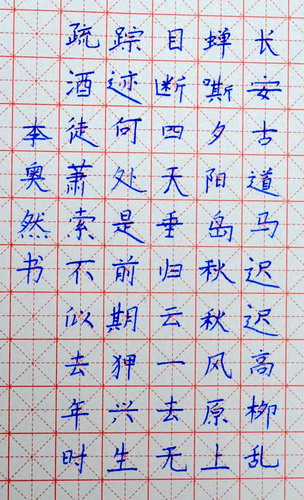 长安古道马迟迟高柳乱
蝉嘶夕阳岛秋秋风原上
目断四天垂归云一去无
踪迹何处是前期狎兴生
疏酒徒萧索不似去年时
本奥然书